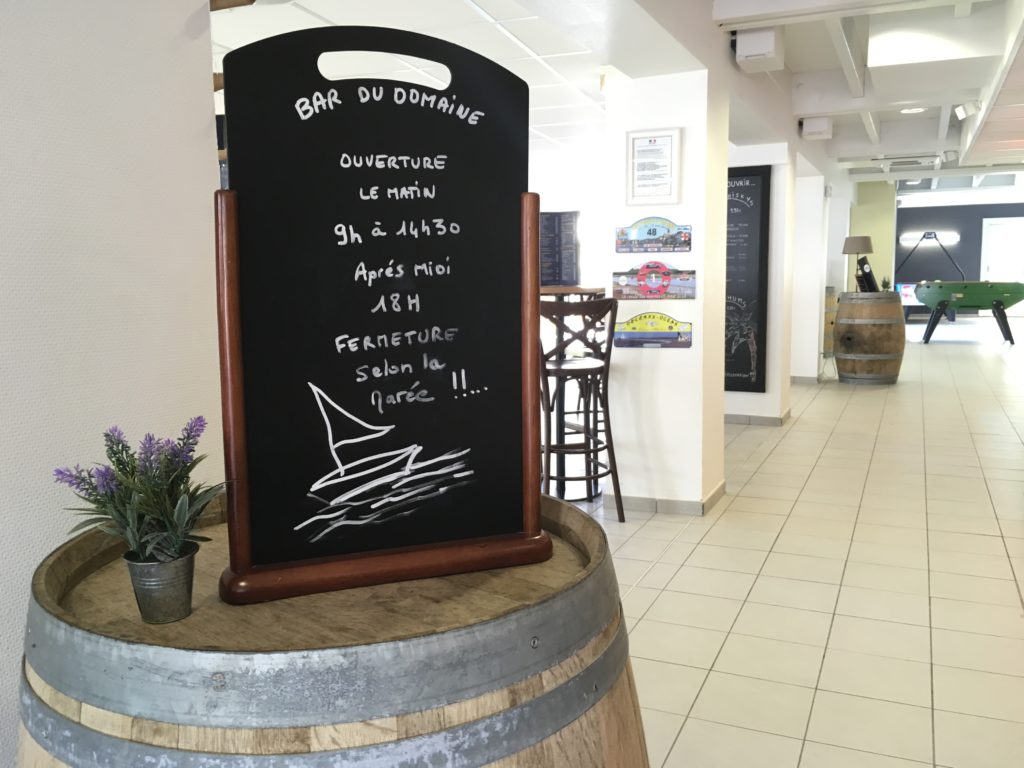 BAR DU DOMAINE
OUVERTURE
LE MATIN
9h à 14h30
Aprés Mioi
18H
FERMETURE
selon la
Marée !!...
48